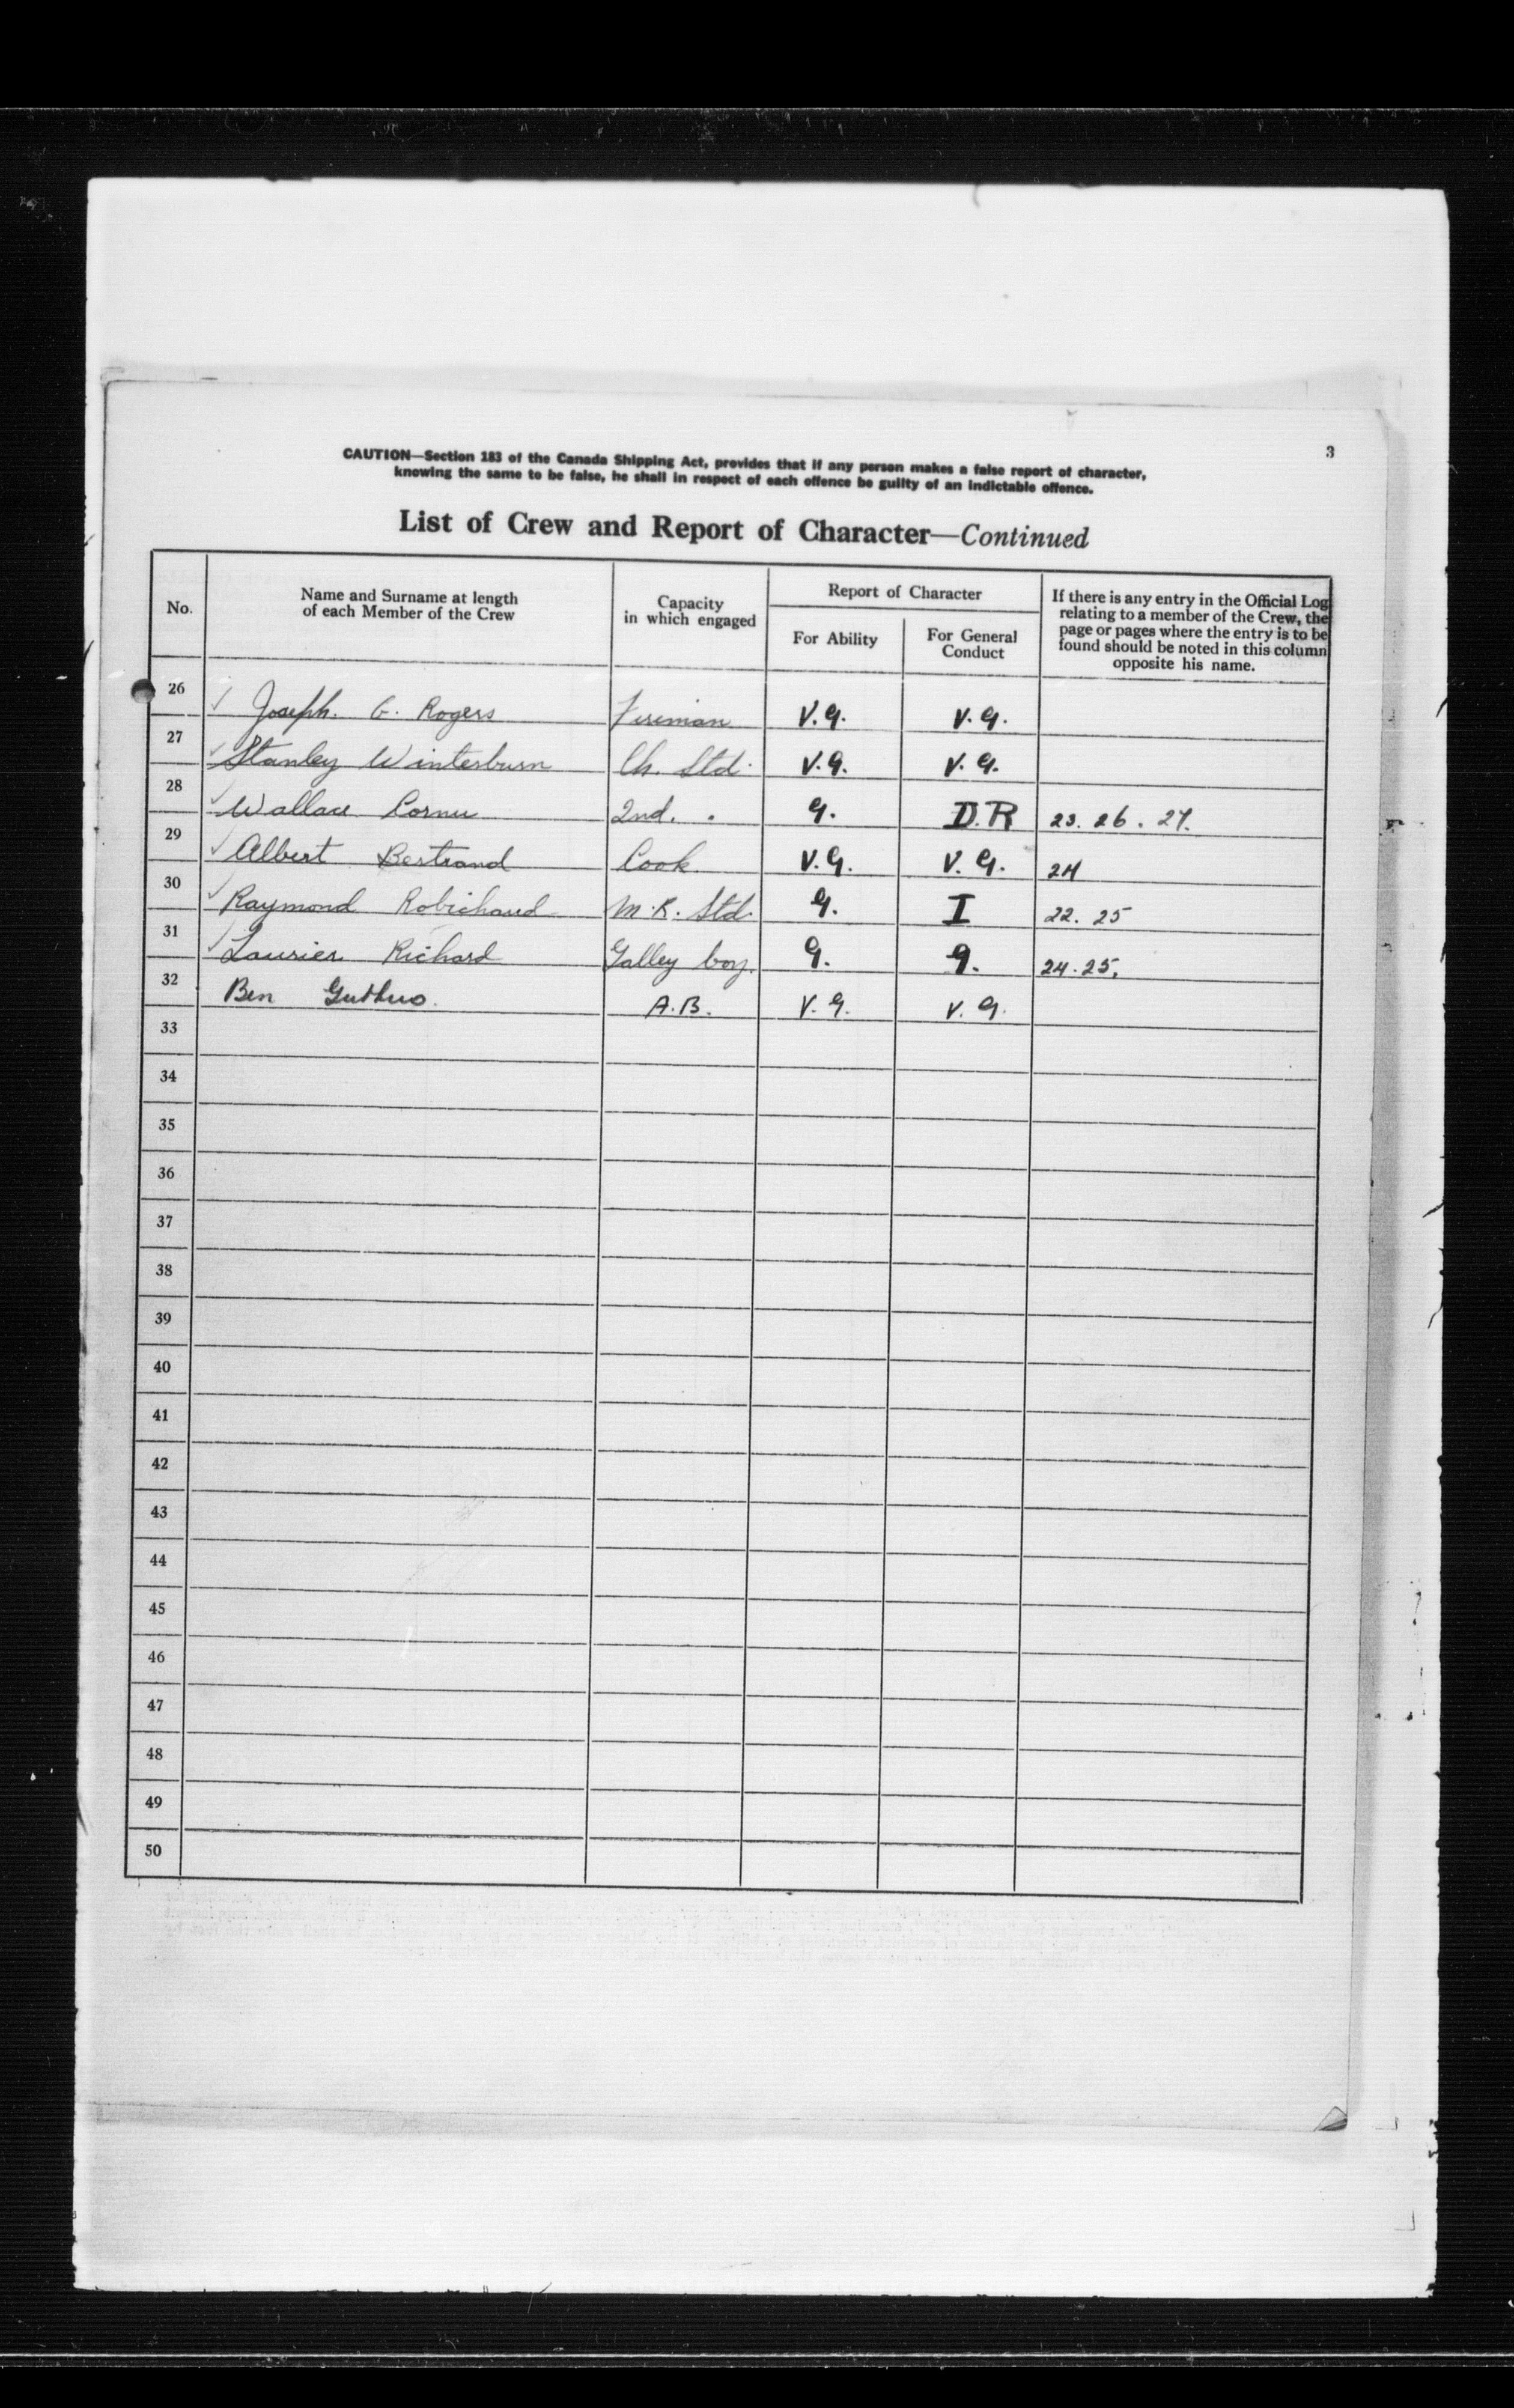 3
CAUTION—Section 183 of the Canada Shipping Act, provides that if any person makes a false report of character,
knowing the same to be false, he shall in respect of each offence be guilty of an indictable offence.
List of Crew and Report of Character—Continued
No.
Name and Surname at length
of each Member of the Crew
Capacity
in which engaged
Report of Character
For Ability
For General
Conduct
If there is any entry in the Official Log
relating to a member of the Crew, the
page or pages where the entry is to be
found should be noted in this column
opposite his name.
26 ✓ Joseph. G. Rogers Fireman V.G. V.G.
27 ✓ Stanley Winterburn Ch. Std. V.G. V.G.
28 ✓ Wallace Cornu 2nd. . G. D.R 23. 26. 27.
29 ✓ Albert Bertrand Cook. V.G. V.G. 24
30 ✓ Raymond Robichaud M.R. Std. G. I 22. 25
31 ✓ Laurier Richard Galley boy. G. G. 24.25.
32 Ben A.B. V.G. V.G.
33
34
35
36
37
38
39
40
41
42
43
44
45
46
47
48
49
50